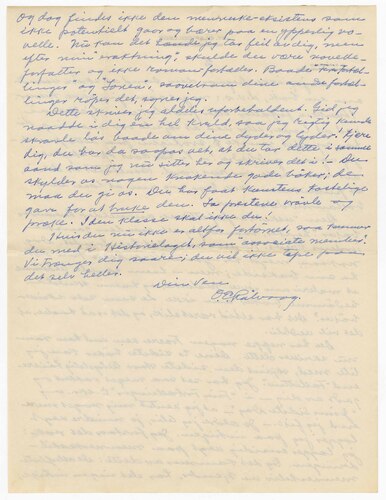 Og dog findes ikke den menneske-eksistens som
ikke potentielt gaar og bærer paa en ypperlig no-
velle. Nu kan det hænde jeg tar feil av dig, men
efter min erfatning, skulde du være novelle-
forfatter og ikke romanforfatter. Baade "Fortæl-
linger" og "Jonea", sooverom dine fortæl-
linger røpes det, synes jeg.
Dette skriver jeg aldeles uforbeholdent. Gid jeg
naadde i dig en hel kveld, saa jeg rigtig kunde
skrade løs baade om dine dyder og lyder. Kjære
dig, du har da saapas vet, at du tar dette i samme
aand som jeg nu sitter her og skriver det i! – Du
skylder os nogen knakende gode bøker; dem
maa du gi os. Du har faat kunstens kostelige
gave for at bruke den. La prestene vrøvle og
præke. I den klasse skal ikke du!
Hvis du nu ikke er altfor fortørnet, saa kommer
du med i Historielaget, som "associate member."
Vi trænger dig saare; du vil ikke tape paa
det selv heller.
Din Ven
O. E. Rølvaag.